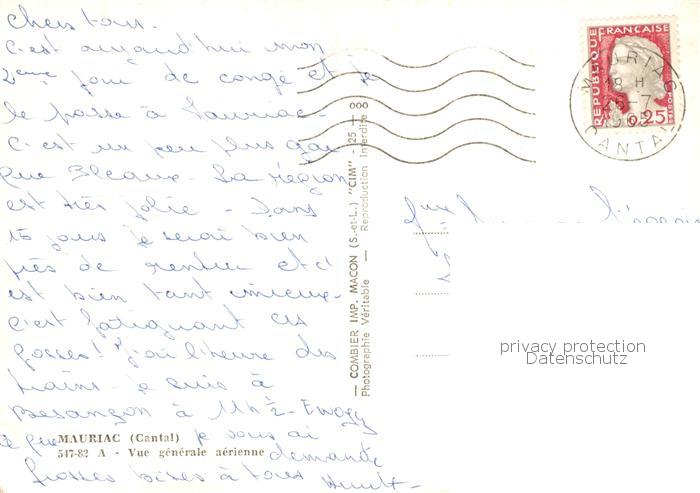 Chers tous.
C'est aujourd'hui mon
2eme jour de congé et je
le passe à Mauriac.
C'est un peu plus gai
que . La région
est très jolie - Dans
15 jours je serai bien
près de rentrer et c'
est bien tant mieux -
c'est fatiguant ces
gosses! J'ai l'heure des
trains - Je suis à
Besançon à 11h½ -
ce que je vous ai
demandé
Grosses bises à tous
MAURIAC (Cantal)
547-82 A - Vue générale aérienne
— COMBIER IMP. MACON (S.-et-L.) "CIM" - 25
Photographie Véritable — Reproduction Interdite
REPUBLIQUE FRANÇAISE
0,25
MAURIAC
18 H
26-7
CANTAL
privacy protection
Datenschutz